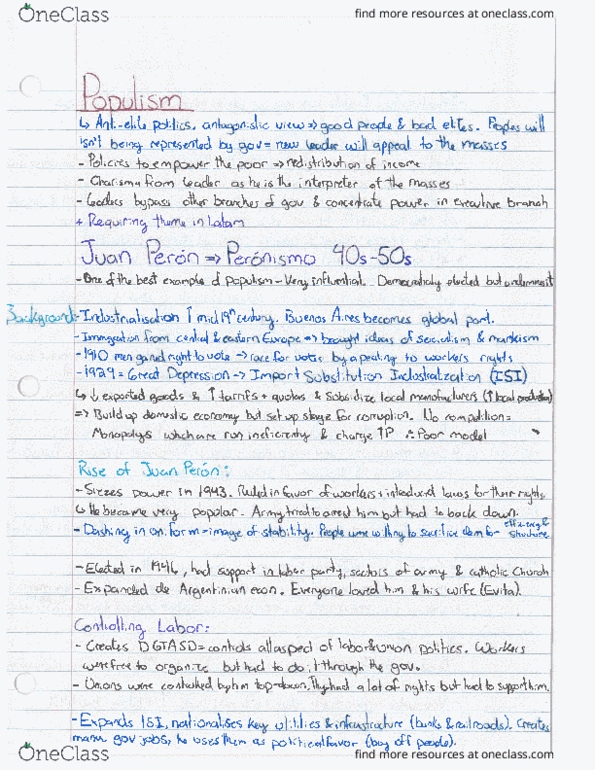 OneClass
find more resources at oneclass.com
Populism
↳ Anti-elite politics, antagonistic view ⇒ good people & bad elites. Peoples will
isn't being represented by gov = new leader will appeal to the masses
- Policies to empower the poor ⇒ redistribution of income
- Charisma from leader as he is the interpreter of the masses
- Leaders bypass other branches of gov & concentrate power in executive branch
+ Requiring theme in Latam
Juan Perón ⇒ Perónismo 40s-50s
- One of the best example of populism - Very influential. Democraticly elected but
Background: - Industrialisation ↑ mid 19th century. Buenos Aires becomes global port.
- Immigration from central & eastern Europe ⇒ brought ideas of socialism & marxism
- 1910 men gained right to vote → race for votes by apealing to workers rights
- 1929 = Great Depression → Import Substitution Industrialization (ISI)
↳ ↓ exported goods & ↑ tarrifs + quotas & Subsidize local manufacturers (↑ local production)
⇒ Build up domestic economy but set up stage for corruption. No competition =
Monopolys which are run inefficiently & charge ↑P ∴ Poor model
Rise of Juan Perón:
- Siezes power in 1943. Ruled in favor of workers + introduced laws for their rights
↳ He became very popular. Army tried to arrest him but had to back down.
- Dashing in uniform = image of stability. People were willing to sacrifice dem for efficiency & structure
- Elected in 1946, had support in labor party, sectors of army & catholic Church
- Expanded de Argentinian econ. Everyone loved him & his wife (Evita).
Controlling Labor:
- Creates DGTASD = controls all aspect of labor & union politics. Workers
were free to organize but had to do it through the gov.
- Unions were controlled by him top-down. They had a lot of rights but had to support him.
- Expands ISI, nationalises key utilities & infrastructure (banks & railroads). Creates
many gov jobs, he uses them as political favor (buy off people).
OneClass
find more resources at oneclass.com